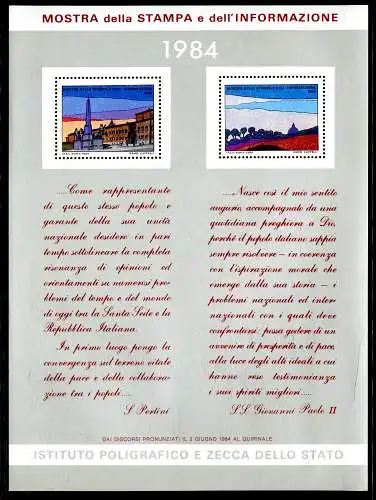 MOSTRA della STAMPA e dell'INFORMAZIONE
1984
MOSTRA DELLA STAMPA E DELL'INFORMAZIONE
1984
MOSTRA DELLA STAMPA E DELL'INFORMAZIONE
1984
.....Come rappresentante
di questo stesso popolo e
garante della sua unità
nazionale desidero in pari
tempo sottolineare la completa
risonanza di opinioni ed
orientamenti su numerosi pro-
blemi del tempo e del mondo
di oggi tra la Santa Sede e la
Repubblica Italiana.
In primo luogo pongo la
convergenza sul terreno vitale
della pace e della collabora-
zione tra i popoli....
S. Pertini
....Nasce così il mio sentito
augurio, accompagnato da una
quotidiana preghiera a Dio,
perché il popolo italiano sappia
sempre risolvere - in coerenza
con l'ispirazione morale che
emerge dalla sua storia - i
problemi nazionali ed inter-
nazionali con i quali deve
confrontarsi: possa godere di un
avvenire di prosperità e di pace,
alla luce degli alti ideali a cui
hanno reso testimonianza
i suoi spiriti migliori....
S.S. Giovanni Paolo II
DAI DISCORSI PRONUNZIATI IL 2 GIUGNO 1984 AL QUIRINALE
ISTITUTO POLIGRAFICO E ZECCA DELLO STATO